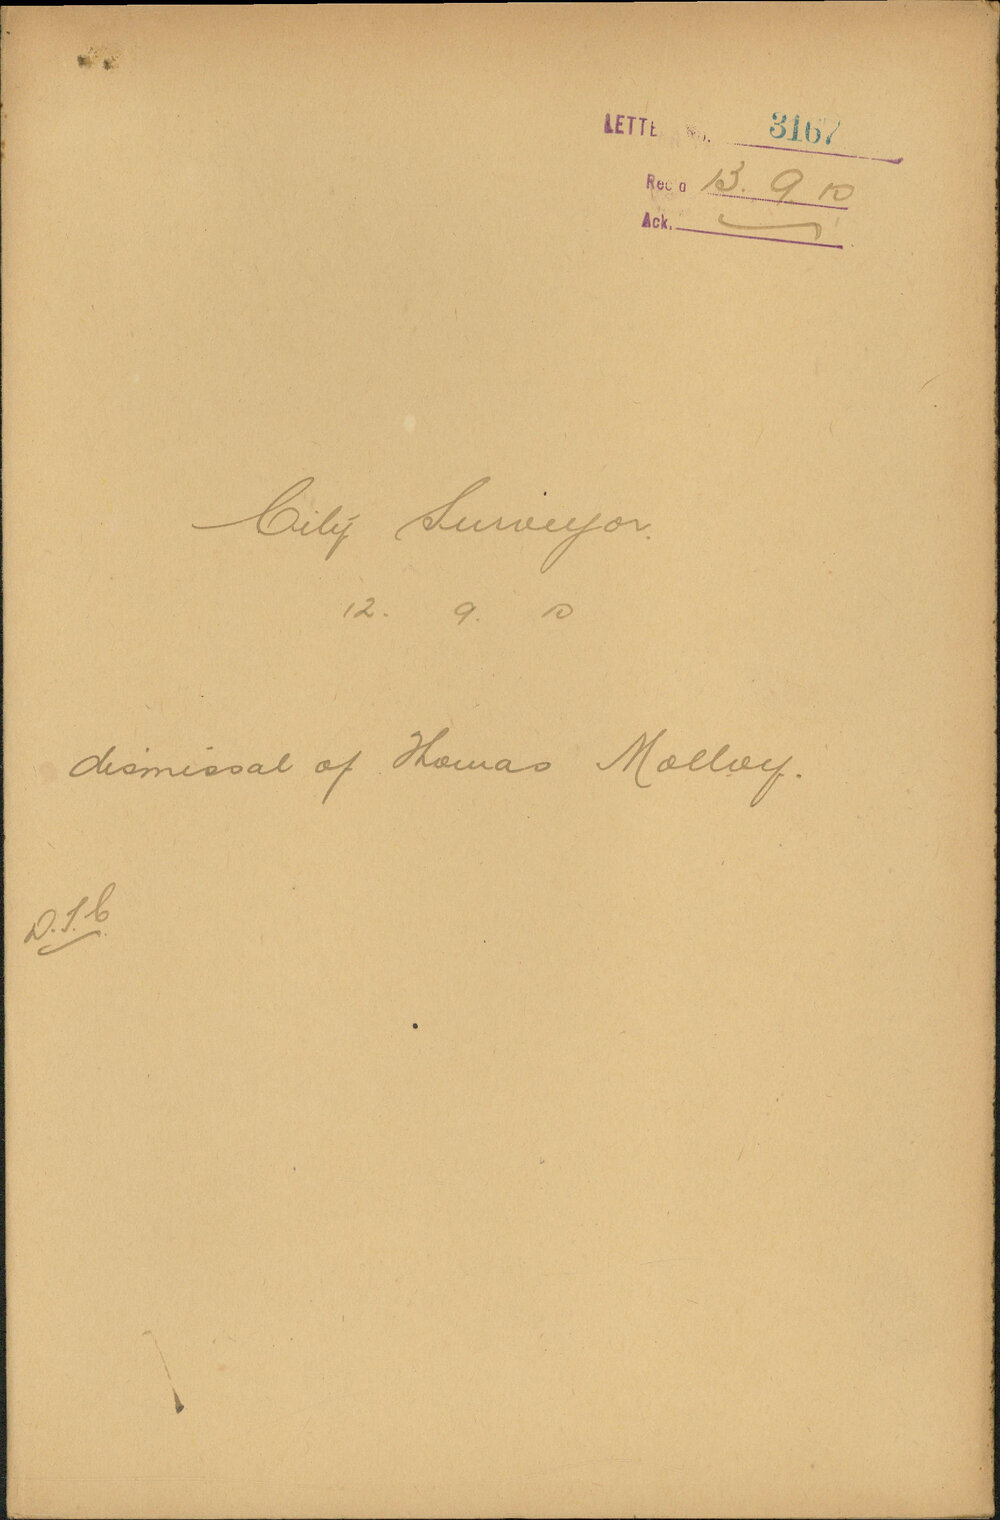 LETTE No. 3167
Rec'd 13. 9. 10
Ack.
City Surveyor.
12. 9. 10
dismissal of Thomas Molloy.
D.T.C